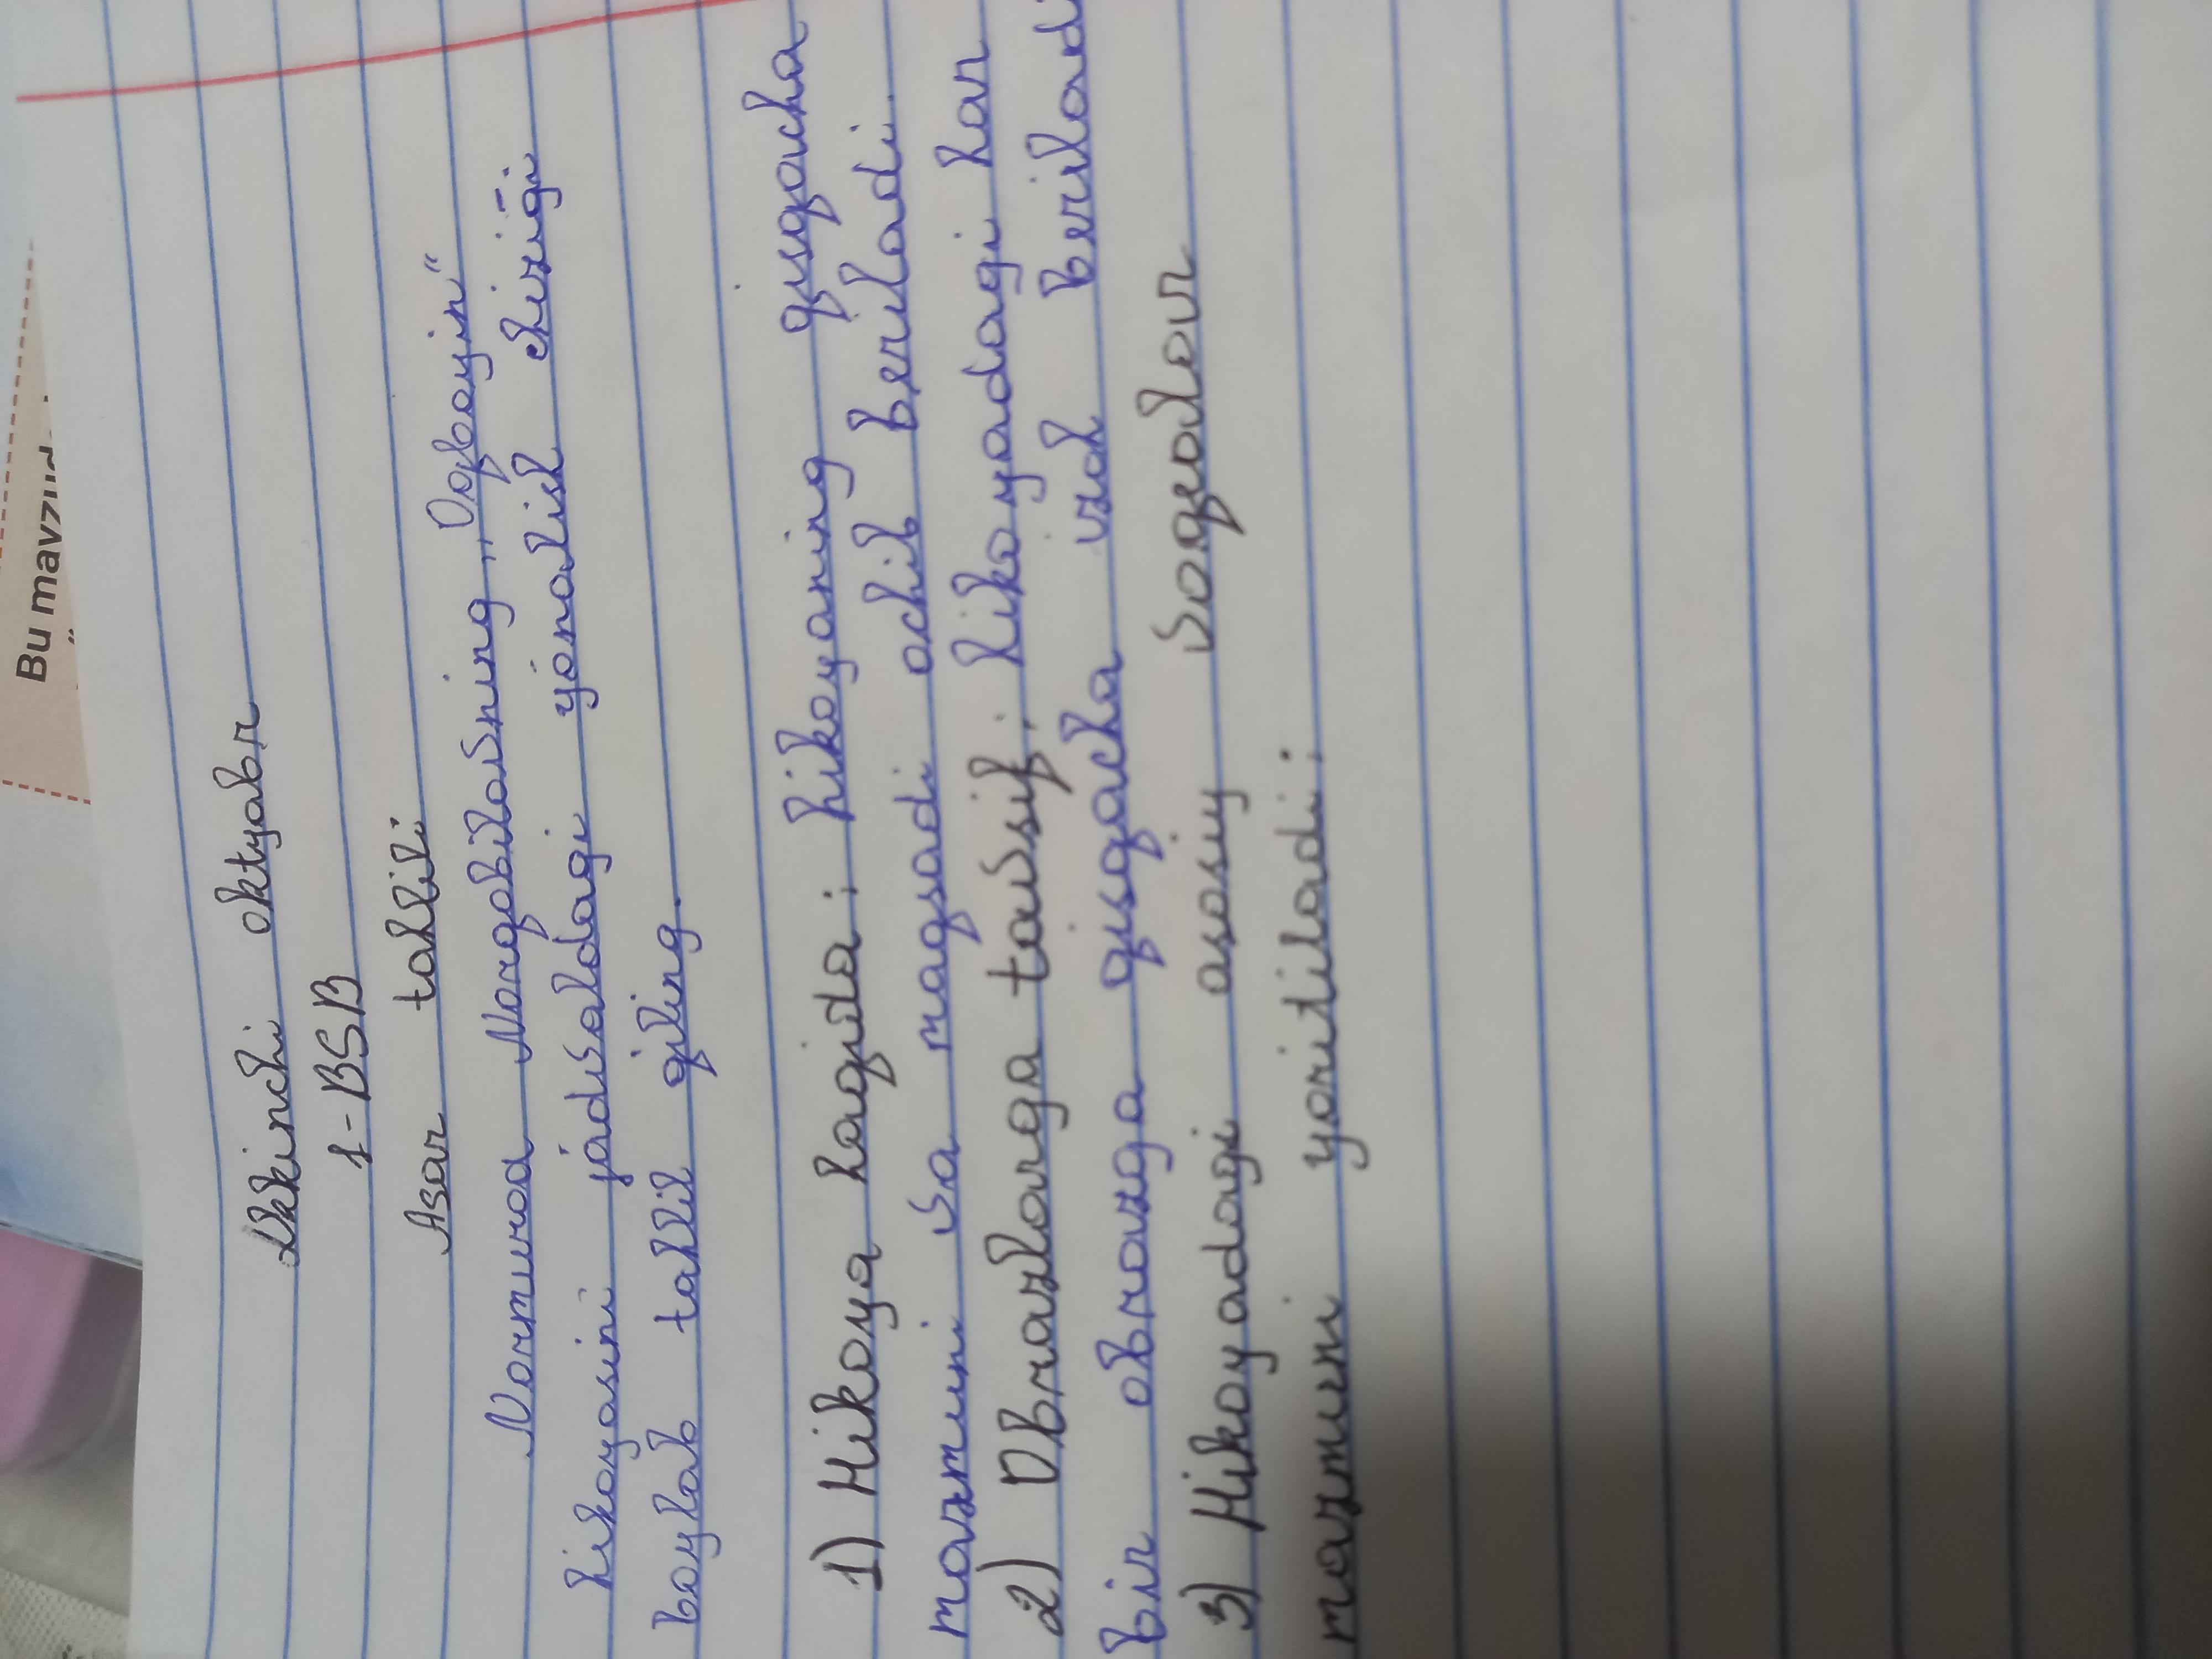 Bu mavzuda
Ikkinchi oktyabr
1-BSB
Asar tahlili
Normurod Norqobilovning „Oqboyin“
hikoyasini jadvaldagi yónalish chiziği
boylab tahlil qiling.
1) Hikoya haqida: hikoyaning qisqacha
mazmuni va maqsadi ochib beriladi.
2) Obrazlarga tavsif: hikoyadagi har
bir obrazga qisqacha izoh beriladi
3) Hikoyadagi asosiy voqealar
mazmuni yoritiladi: